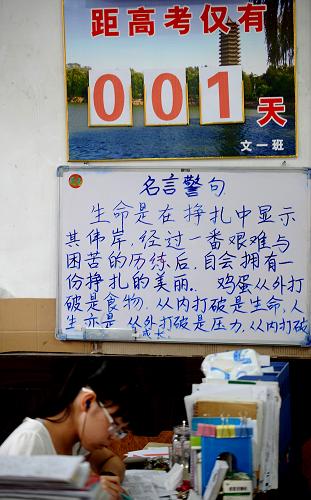 距高考仅有
001
天
文一班
名言警句
生命是在挣扎中显示
其伟岸,经过一番艰难与
困苦的历练后,自会拥有一
份挣扎的美丽.. 鸡蛋从外打
破是食物,从内打破是生命,人
生亦是 从外打破是压力,从内打破
成长.